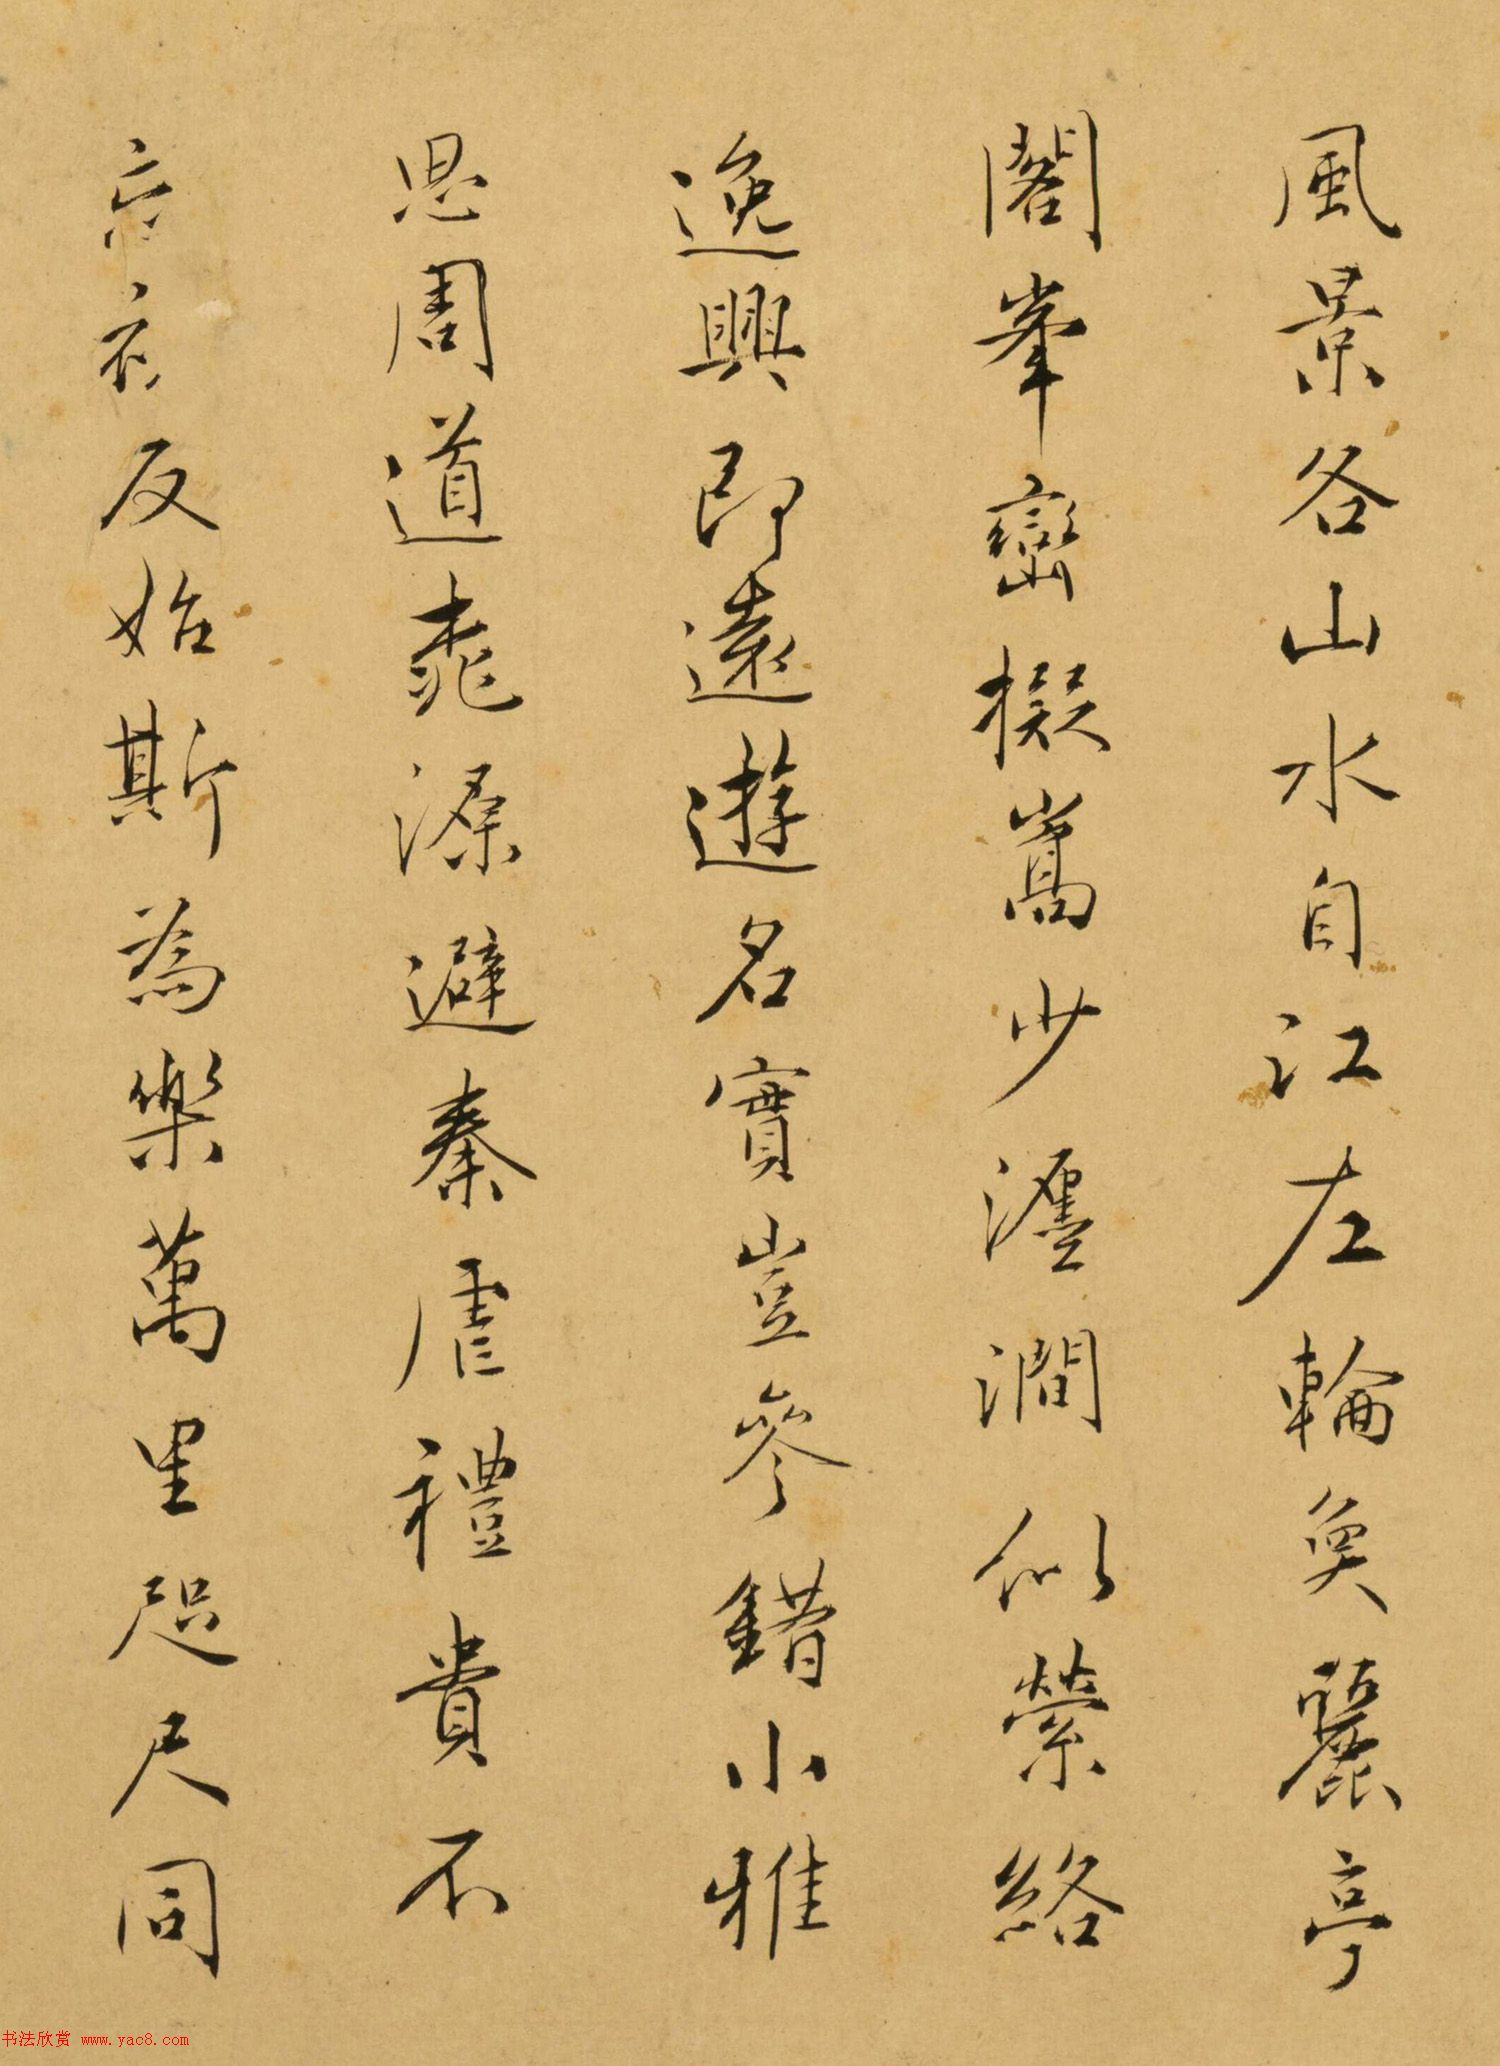 風景各山水自江左輪奐麗亭
閣峯巒擬嵩少瀍澗似縈絡
逸興即遠遊名實豈參錯小雅
思周道桃源避秦虐禮貴不
忘衣反始斯為樂萬里咫尺同
书法欣赏 www.yac8.com